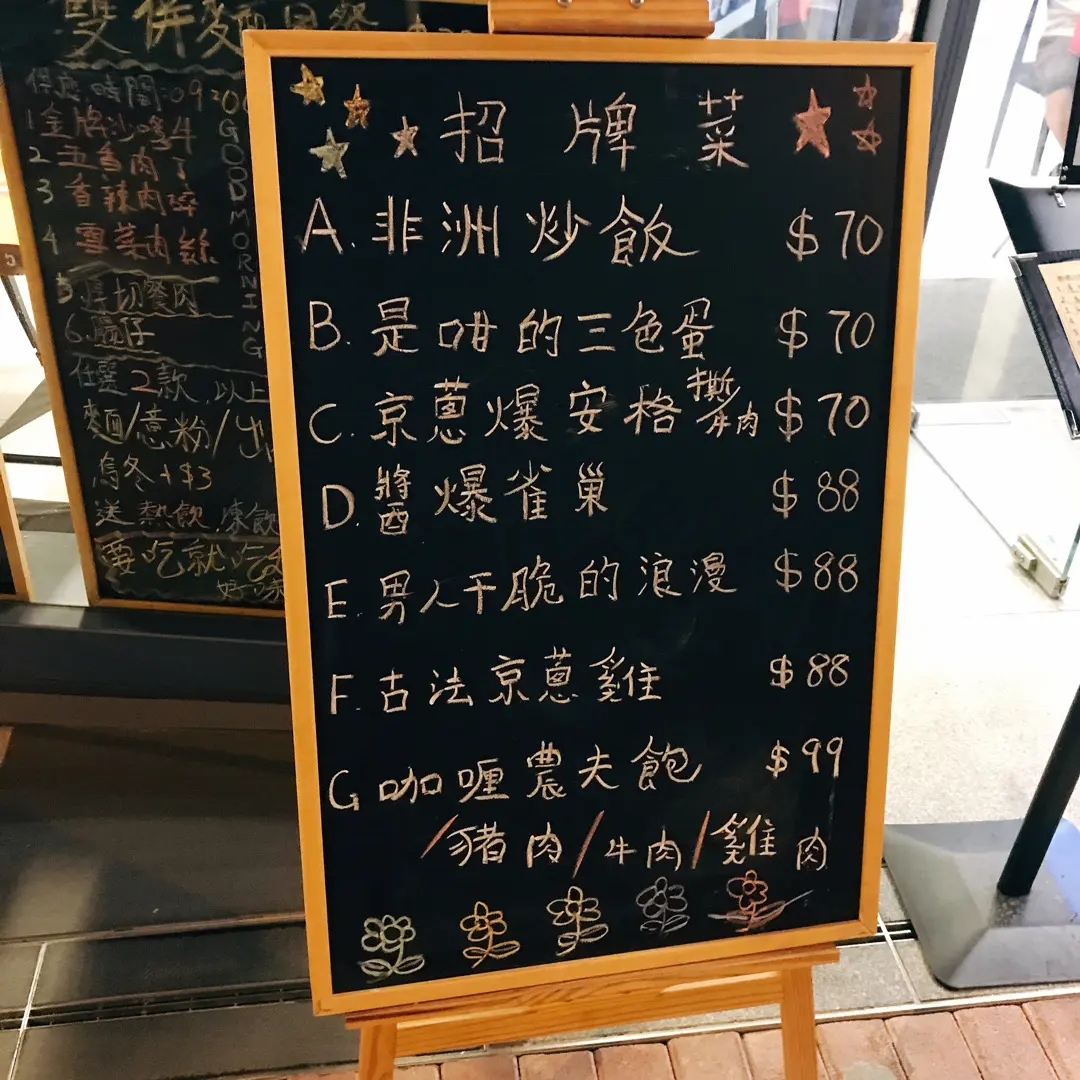 招牌菜
A. 非洲炒飯 $70
B. 是咁的三色蛋 $70
C. 京蔥爆安格撕牛肉 $70
D. 醬爆雀巢 $88
E. 男人干脆的浪漫 $88
F. 古法京蔥雞 $88
G 咖喱農夫飽 $99
/豬肉/牛肉/雞肉
雙併麵
供應時間:09:00
1 金牌沙嗲牛
2 五香肉丁
3 香辣肉碎
4 雪菜肉絲
5 厚切餐肉
6. 腸仔
任選2款,以上
麵/意粉/
烏冬+$3
送熱飲,凍飲
要吃就吃
好味
GOOD MORNING